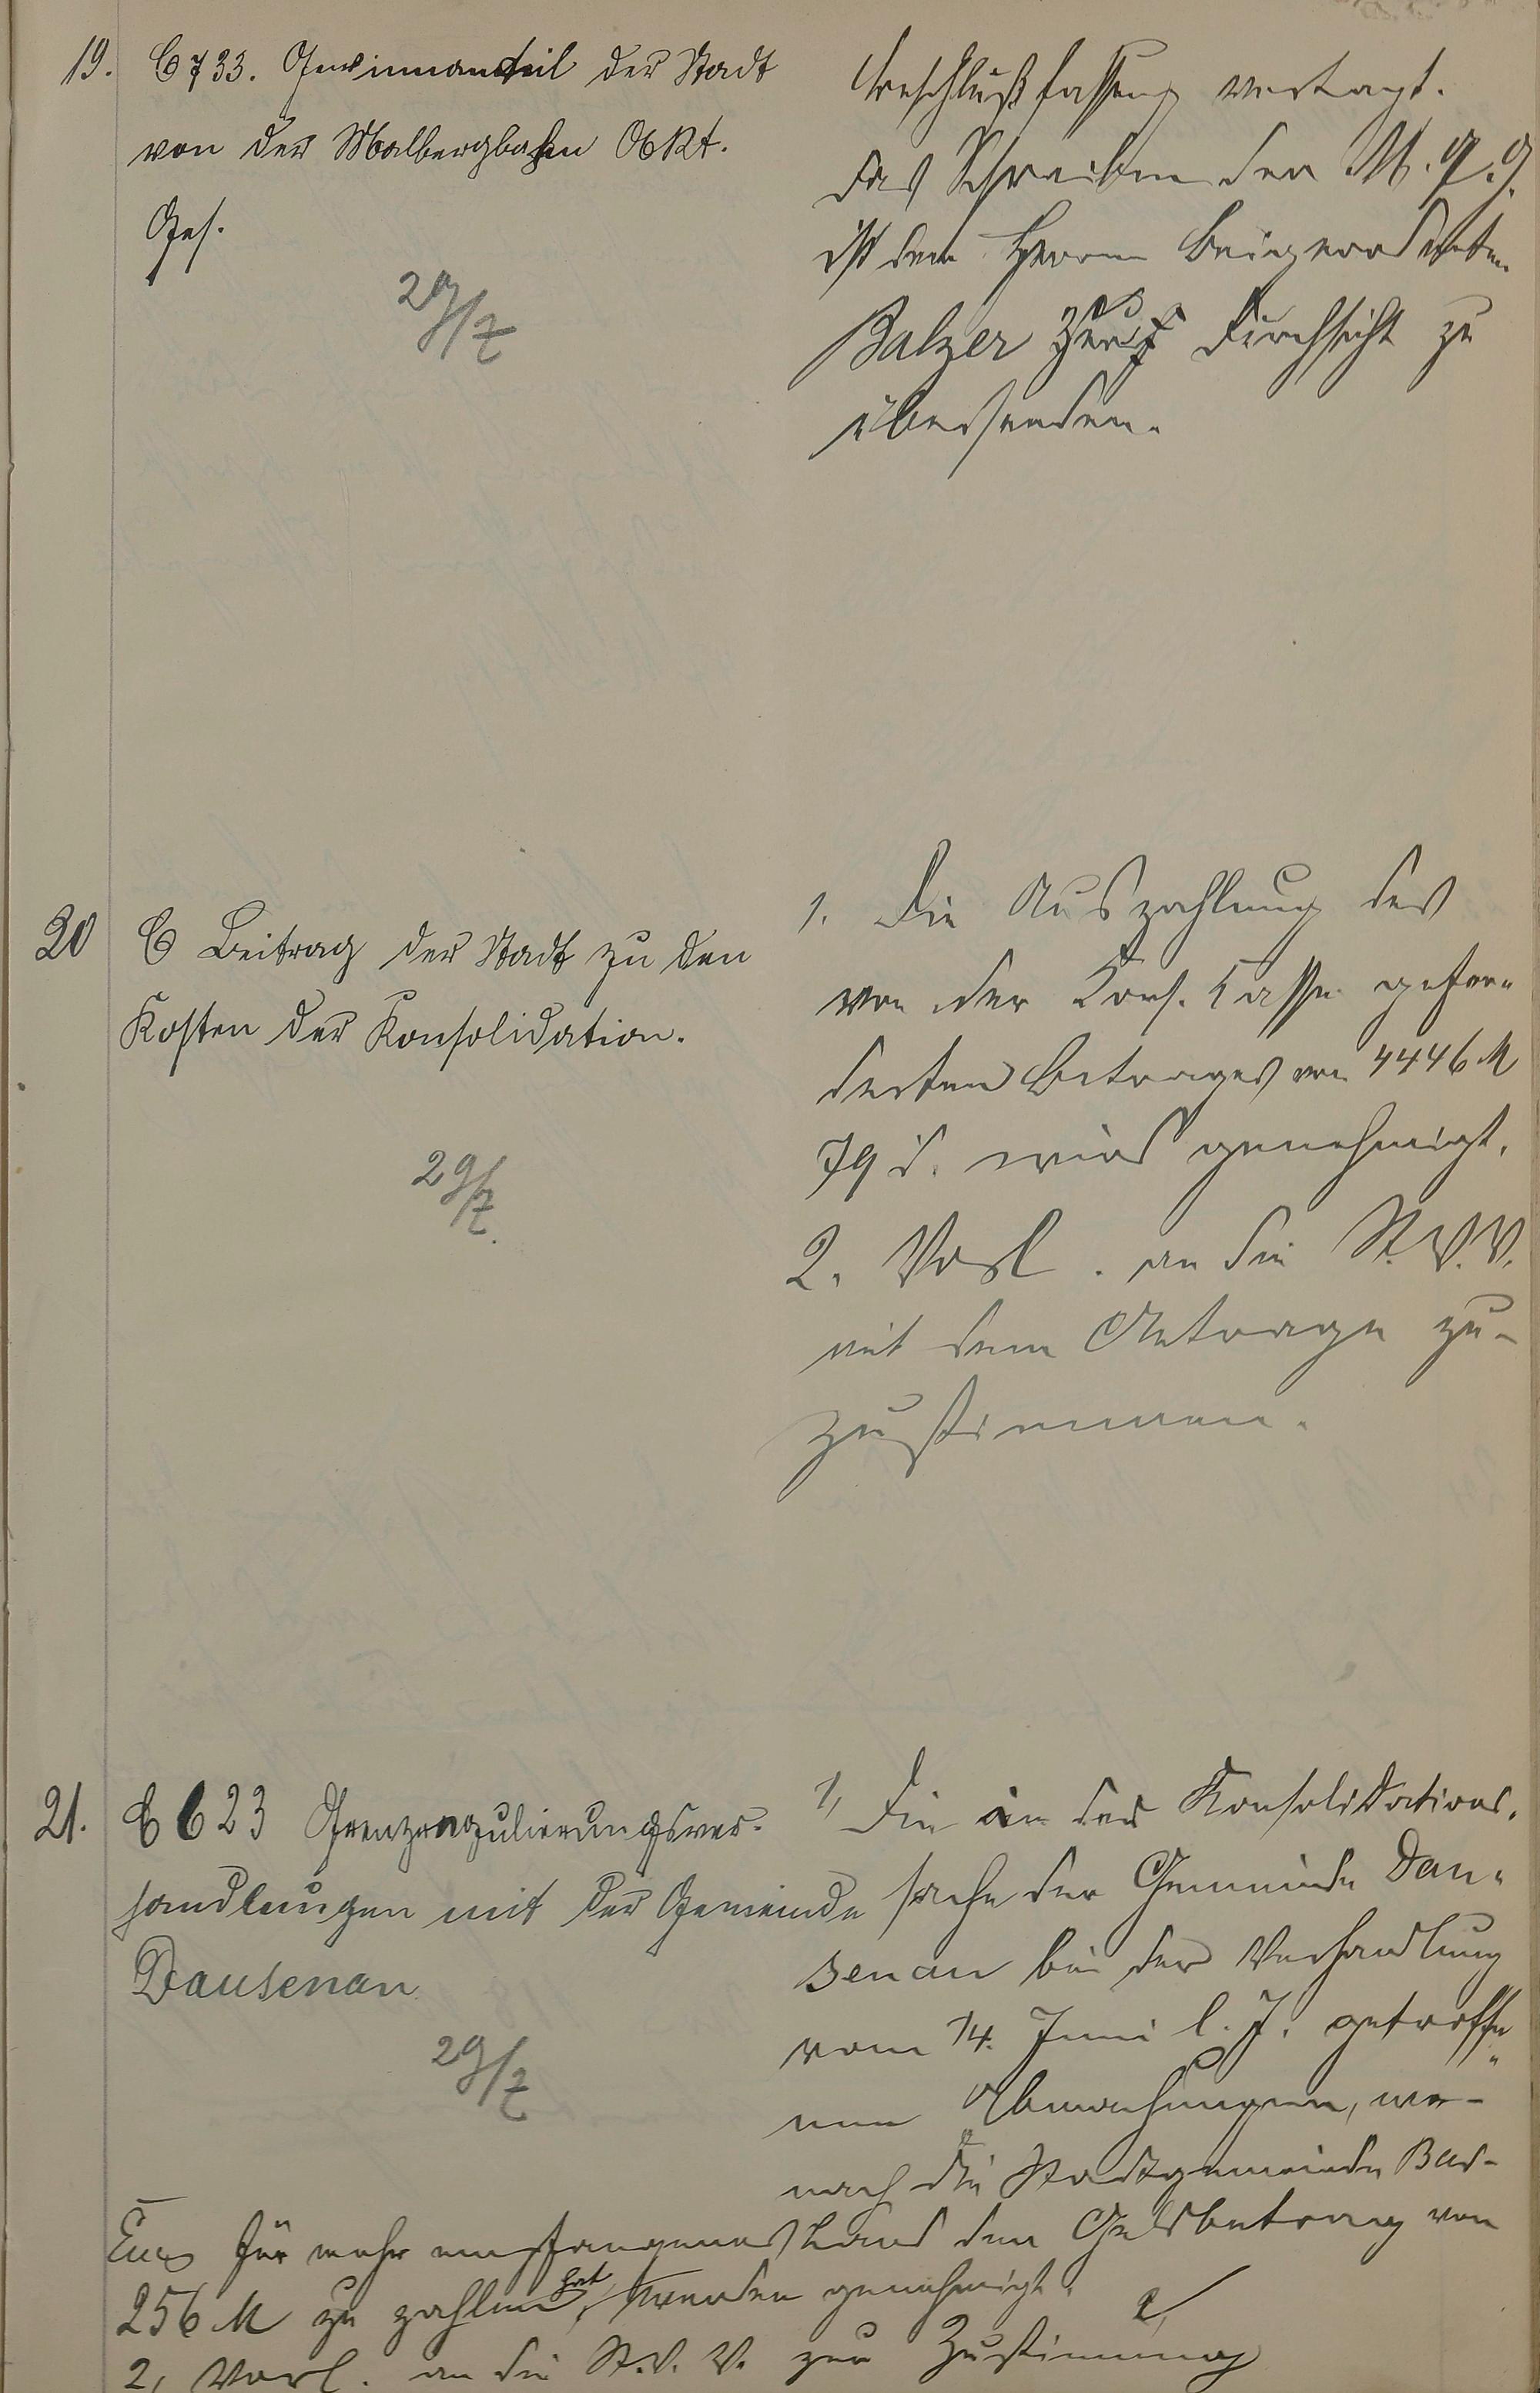 19. C 733. Gewinnanteil der Stadt
von der Malbergbahn Akt.
Ges.
29/7
Beschlußfassung vertagt.
Das Schreiben der M. B. G.
ist dem Herrn Beigeordneten
Balzer zur Durchsicht zu
übersenden.
20 C Beitrag der Stadt zu den
Kosten der Konsolidation.
29/7.
1. Die Auszahlung des
von der Kons. Kasse gefor-
derten Betrages von 4446 M
79 d. wird genehmigt.
2. Vorl. an die St. V. V.
mit dem Antrage zu-
zustimmen.
21. C 623 Grenzregulierungsver-
handlungen mit der Gemeinde
Dausenau
29/7
1, Die in der Konsolidations-
sache der Gemeinde Dau-
senau bei der Verhandlung
vom 14. Juni l. J. getroffe-
nen Abmachungen, wo-
nach die Stadtgemeinde Bad-
Ems für mehr empfangenes Land den Geldbetrag von
256 M zu zahlen hat, werden genehmigt.
2, Vorl. an die St. V. V. zur Zustimmung